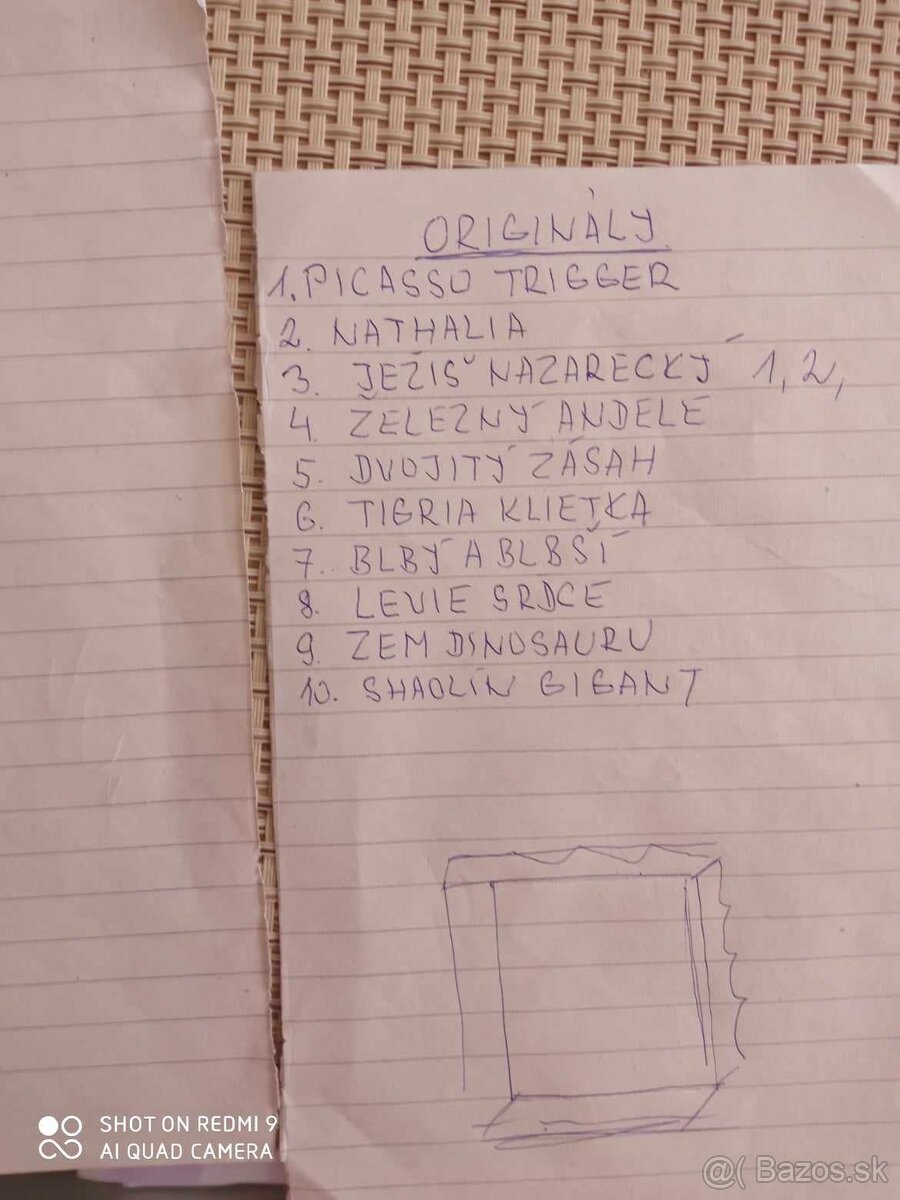 ORIGINÁLY
1. PICASSO TRIGGER
2. NATHALIA
3. JEŽIŠ NAZARECKÝ 1, 2,
4. ŽELEZNÝ ANDELE
5. DVOJITÝ ZÁSAH
6. TIGRIA KLIETKA
7. BLBÝ A BLBŠÍ
8. LEVIE SRDCE
9. ZEM DINOSAURU
10. SHAOLIN GIGANT
SHOT ON REDMI 9
AI QUAD CAMERA
@( Bazos.sk